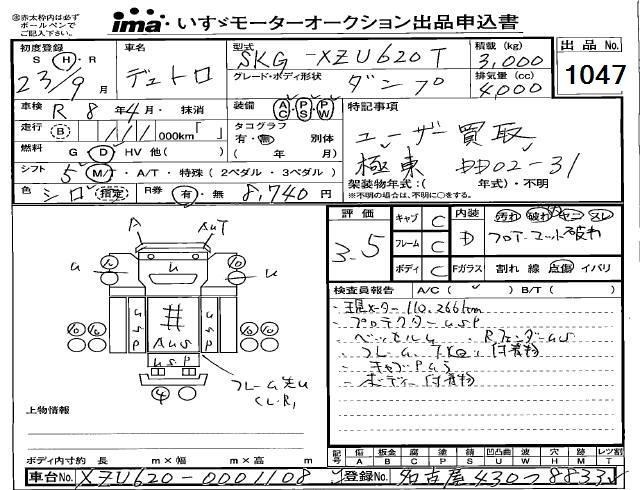 ㊟赤太枠内は必ず ボールペンで ご記入下さい。
ima いすゞモーターオークション出品申込書
初度登録 S Ⓗ・R 23/9 月
車名 デュトロ
型式 SKG-XZU620T
積載 (kg) 3,000
出品 No. 1047
グレード・ボディ形状 ダンプ
排気量 (cc) 4,000
車検 R 8年4月・抹消
装備 AC PS PW
特記事項
走行 B 000km「 」
タコグラフ 有・無 別体 ( 年 月)
ユーザー買取
燃料 G Ⓓ HV 他( )
極東 DD02-31
シフト 5 M/ ・A/T・特殊(2ペダル・3ペダル)
架装物年式:( 年式)・不明
※不明の場合は、不明に○をする。
色 シロ 指定 R券 有・無 8,740円
評価 3.5
キャブ C
フレーム C
ボディ C
内装 D
汚れ 破れ コゲ スレ
フロアーマット破れ
Fガラス 割れ 線 点傷 イバリ
検査員報告 A/C( ✓ ) B/T( )
・現メーター110,266km
・プロテクターUSP
・ベッセルU ・RフェンダーUS
・フレーム、付着物
・キャブPUS
・ボディー付着物
A AUT
U U U
U S P
AUS
U S P
USP
フレーム先U (L.R)
4
上物情報
ボディ内寸約 長 m×幅 m×高 m
記号 傷 A 板金 B 腐 C 塗 P 錆 S 凹凸曲 U 波 W 穴 H 跡 M レンズ割 T
車台No. XZU620-0001108
登録No. 名古屋430つ8833